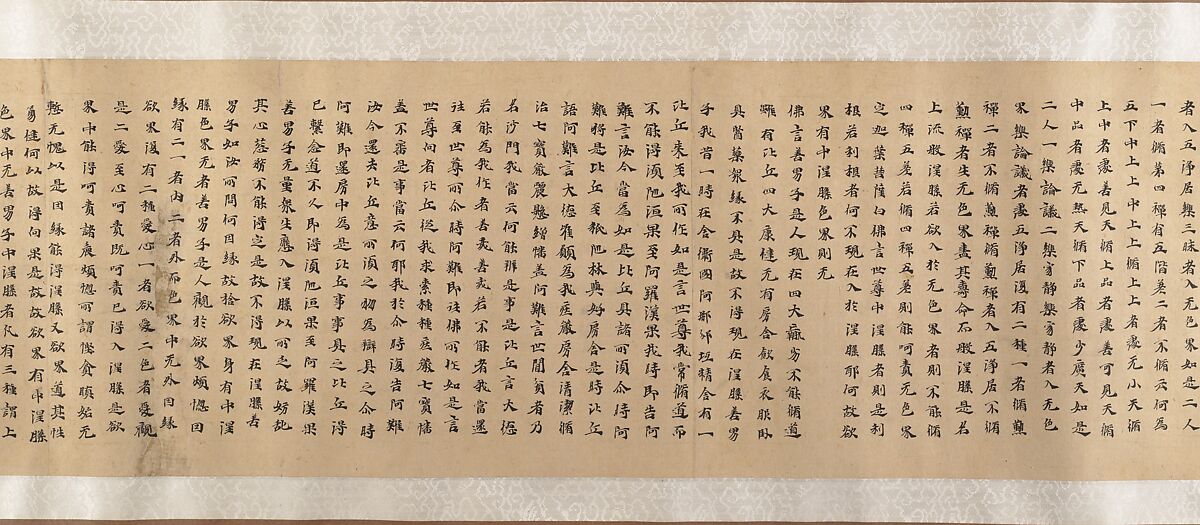 者入五淨居樂三昧者入无色界如是二人
一者俻第四禪有五階差二者不俻云何為
五下中上上中上上俻上上者處无小天俻
上中者處善見天俻上品者處善可見天俻
中品者處无熱天俻下品者處少廣天如是
二人一樂論議二樂寂靜樂寂靜者入无色
界樂論議者處五淨居復有二種一者俻薰
禪二者不俻薰禪俻勳禪者入五淨居不俻
勳禪者生无色界盡其壽命而般涅槃是名
上流般涅槃若欲入於无色界者則不能俻
四禪五差若俻四禪五差則能呵責无色界
定迦葉菩薩白佛言世尊中涅槃者則是利
根若利根者何不現在入於涅槃耶何故欲
界有中涅槃色界則无
佛言善男子是人現在四大羸劣不能俻道
雖有比丘四大康健无有房舍飲食衣服卧
具醫藥衆緣不具是故不得現在涅槃善男
子我昔一時在舍衛國阿那邠坻精舍有一
比丘来至我所作如是言世尊我常俻道而
不能得湏陁洹果至阿羅漢果我時即告阿
難言汝今當為如是比丘具諸所湏尒時阿
難將是比丘至祇陁林與好房舍是時比丘
語阿難言大徳唯願為我莊嚴房舍清潔俻
治七寶嚴麗懸繒幡蓋阿難言世間貧者乃
名沙門我當云何能辦是事是比丘言大徳
若能為我作者善哉善哉若不能者我當還
往至世尊所尒時阿難即往佛所作如是言
世尊向者比丘從我求索種種莊嚴七寶幡
盖不審是事當云何耶我於尒時復告阿難
汝今還去比丘意所湏之物為辦具之尒時
阿難即還房中為是比丘事事具之比丘得
已繫念道不久即得湏陁洹果至阿羅漢果
善男子无量衆生應入涅槃以所乏故妨乱
其心不能得定是故不得現在涅槃善
男子如汝所問何因緣故捨欲界身有中涅
槃色界无者善男子是人觀於欲界煩惱因
緣有二一者内二者外而色界中无外因緣
欲界復有二種愛心一者欲愛二色者愛觀
是二愛至心呵責既呵責已得入涅槃是欲
界中能得呵責諸麁煩惱所謂慳貪瞋妬无
慙无愧以是因緣能得涅槃又欲界道其性
勇健何以故得向果是故故欲界有中涅槃
色界中无善男子中涅槃者凡有三種謂上